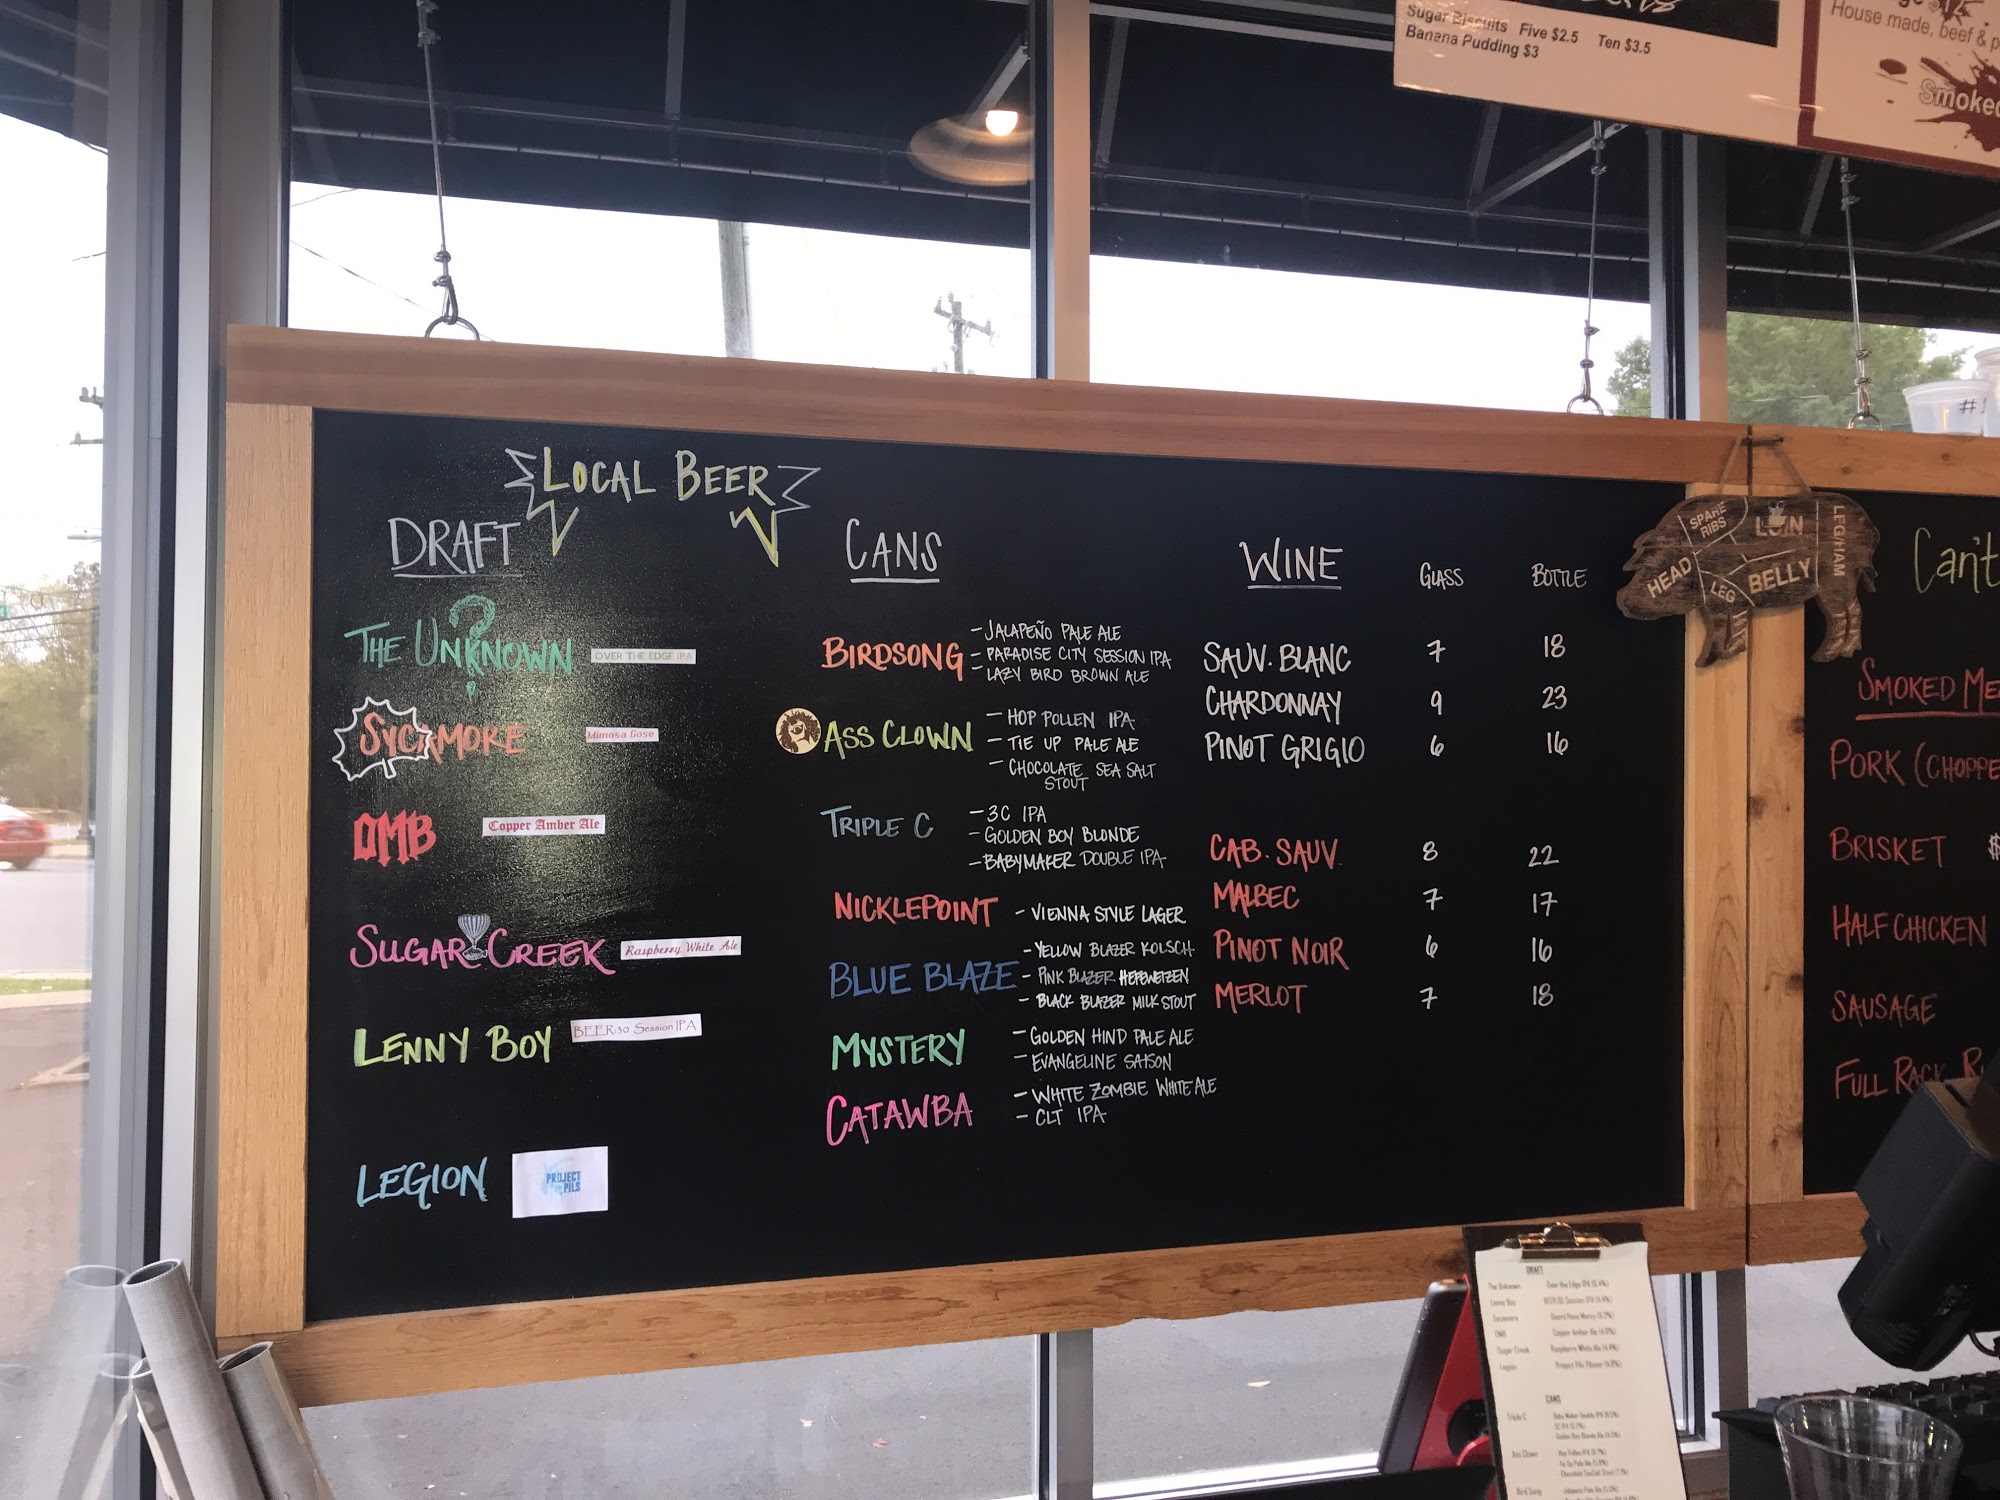 Sugar Biscuits Five $2.5 Ten $3.5
Banana Pudding $3
House made, beef & p
Smoked
#1
LOCAL BEER
DRAFT
THE UNKNOWN ?
OVER THE EDGE IPA
SYCAMORE
Mimosa Gose
OMB
Copper Amber Ale
SUGAR CREEK
Raspberry White Ale
LENNY BOY
BEER:30 Session IPA
LEGION
PROJECT
PILS
CANS
BIRDSONG
- JALAPEÑO PALE ALE
- PARADISE CITY SESSION IPA
- LAZY BIRD BROWN ALE
ASS CLOWN
- HOP POLLEN IPA
- TIE UP PALE ALE
- CHOCOLATE SEA SALT
STOUT
TRIPLE C
- 3C IPA
- GOLDEN BOY BLONDE
- BABYMAKER DOUBLE IPA
NICKLEPOINT
- VIENNA STYLE LAGER
BLUE BLAZE
- YELLOW BLAZER KOLSCH
- PINK BLAZER HEFEWEIZEN
- BLACK BLAZER MILK STOUT
MYSTERY
- GOLDEN HIND PALE ALE
- EVANGELINE SAISON
CATAWBA
- WHITE ZOMBIE WHITE ALE
- CLT IPA
WINE GLASS BOTTLE
SAUV. BLANC 7 18
CHARDONNAY 9 23
PINOT GRIGIO 6 16
CAB. SAUV. 8 22
MALBEC 7 17
PINOT NOIR 6 16
MERLOT 7 18
SPARE
RIBS
LOIN
LEG/HAM
HEAD
LEG
BELLY
Can't
SMOKED ME
PORK (CHOPPE
BRISKET $
HALF CHICKEN
SAUSAGE
FULL RACK R
DRAFT
The Unknown Over the Edge IPA
Lenny Boy BEER:30 Session IPA
Sycamore
OMB Copper Amber Ale
Sugar Creek Raspberry White Ale
Legion Project Pils Pilsner
CANS
Triple C Baby Maker Double IPA
3C IPA
Golden Boy Blonde Ale
Ass Clown Hop Pollen IPA
Tie Up Pale Ale
Chocolate Sea Salt Stout
Bird Song Jalapeno Pale Ale